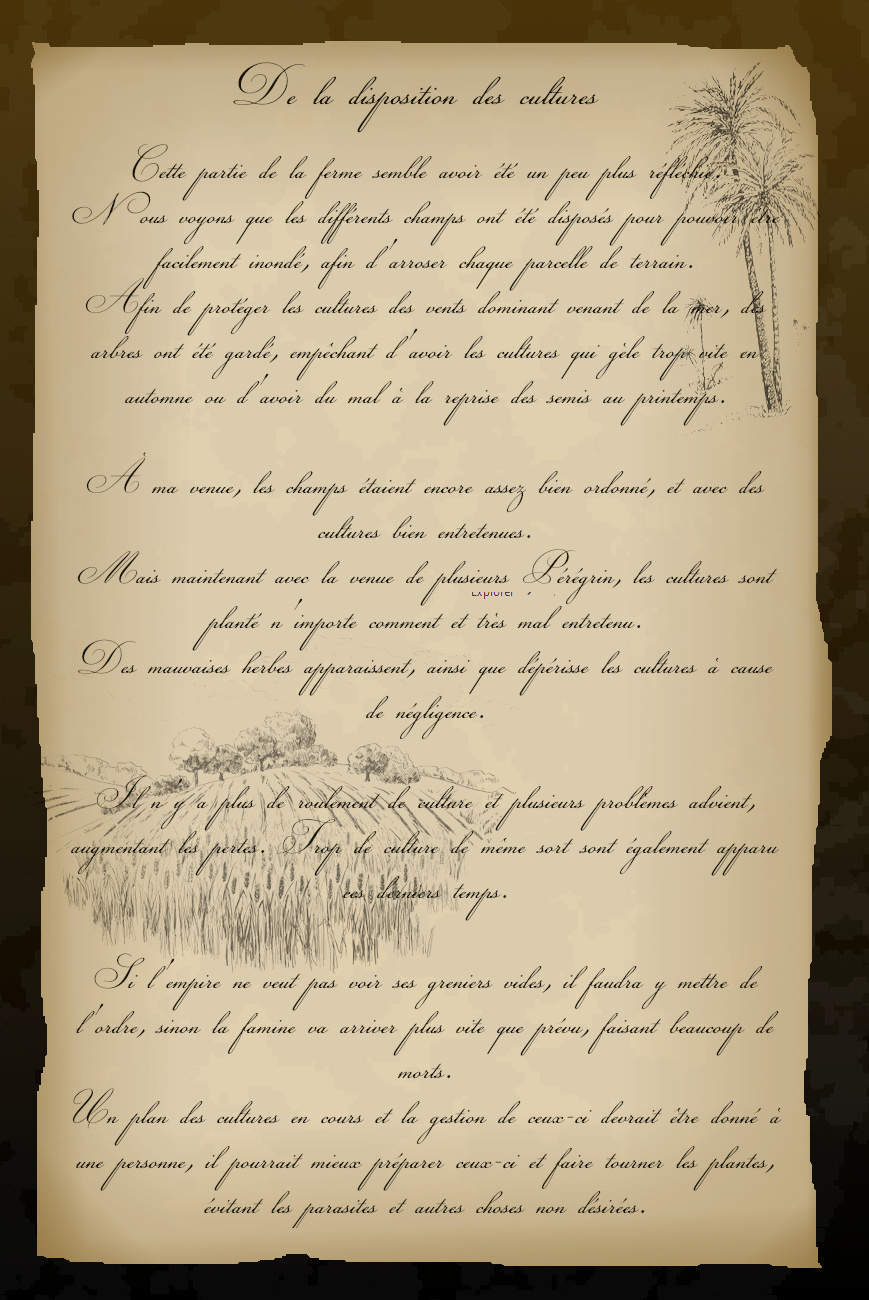 De la disposition des cultures
Cette partie de la ferme semble avoir été un peu plus réfléchie.
Nous voyons que les différents champs ont été disposés pour pouvoir être
facilement inondé, afin d'arroser chaque parcelle de terrain.
Afin de protéger les cultures des vents dominant venant de la mer, des
arbres ont été gardé, empêchant d'avoir les cultures qui gèle trop vite en
automne ou d'avoir du mal à la reprise des semis au printemps.
À ma venue, les champs étaient encore assez bien ordonné, et avec des
cultures bien entretenues.
Mais maintenant avec la venue de plusieurs Pérégrin, les cultures sont
Explorer
planté n'importe comment et très mal entretenu.
Des mauvaises herbes apparaissent, ainsi que dépérisse les cultures à cause
de négligence.
Il n'y a plus de roulement de culture et plusieurs problèmes advient,
augmentant les pertes. Trop de culture de même sort sont également apparu
ces derniers temps.
Si l'empire ne veut pas voir ses greniers vides, il faudra y mettre de
l'ordre, sinon la famine va arriver plus vite que prévu, faisant beaucoup de
morts.
Un plan des cultures en cours et la gestion de ceux-ci devrait être donné à
une personne, il pourrait mieux préparer ceux-ci et faire tourner les plantes,
évitant les parasites et autres choses non désirées.